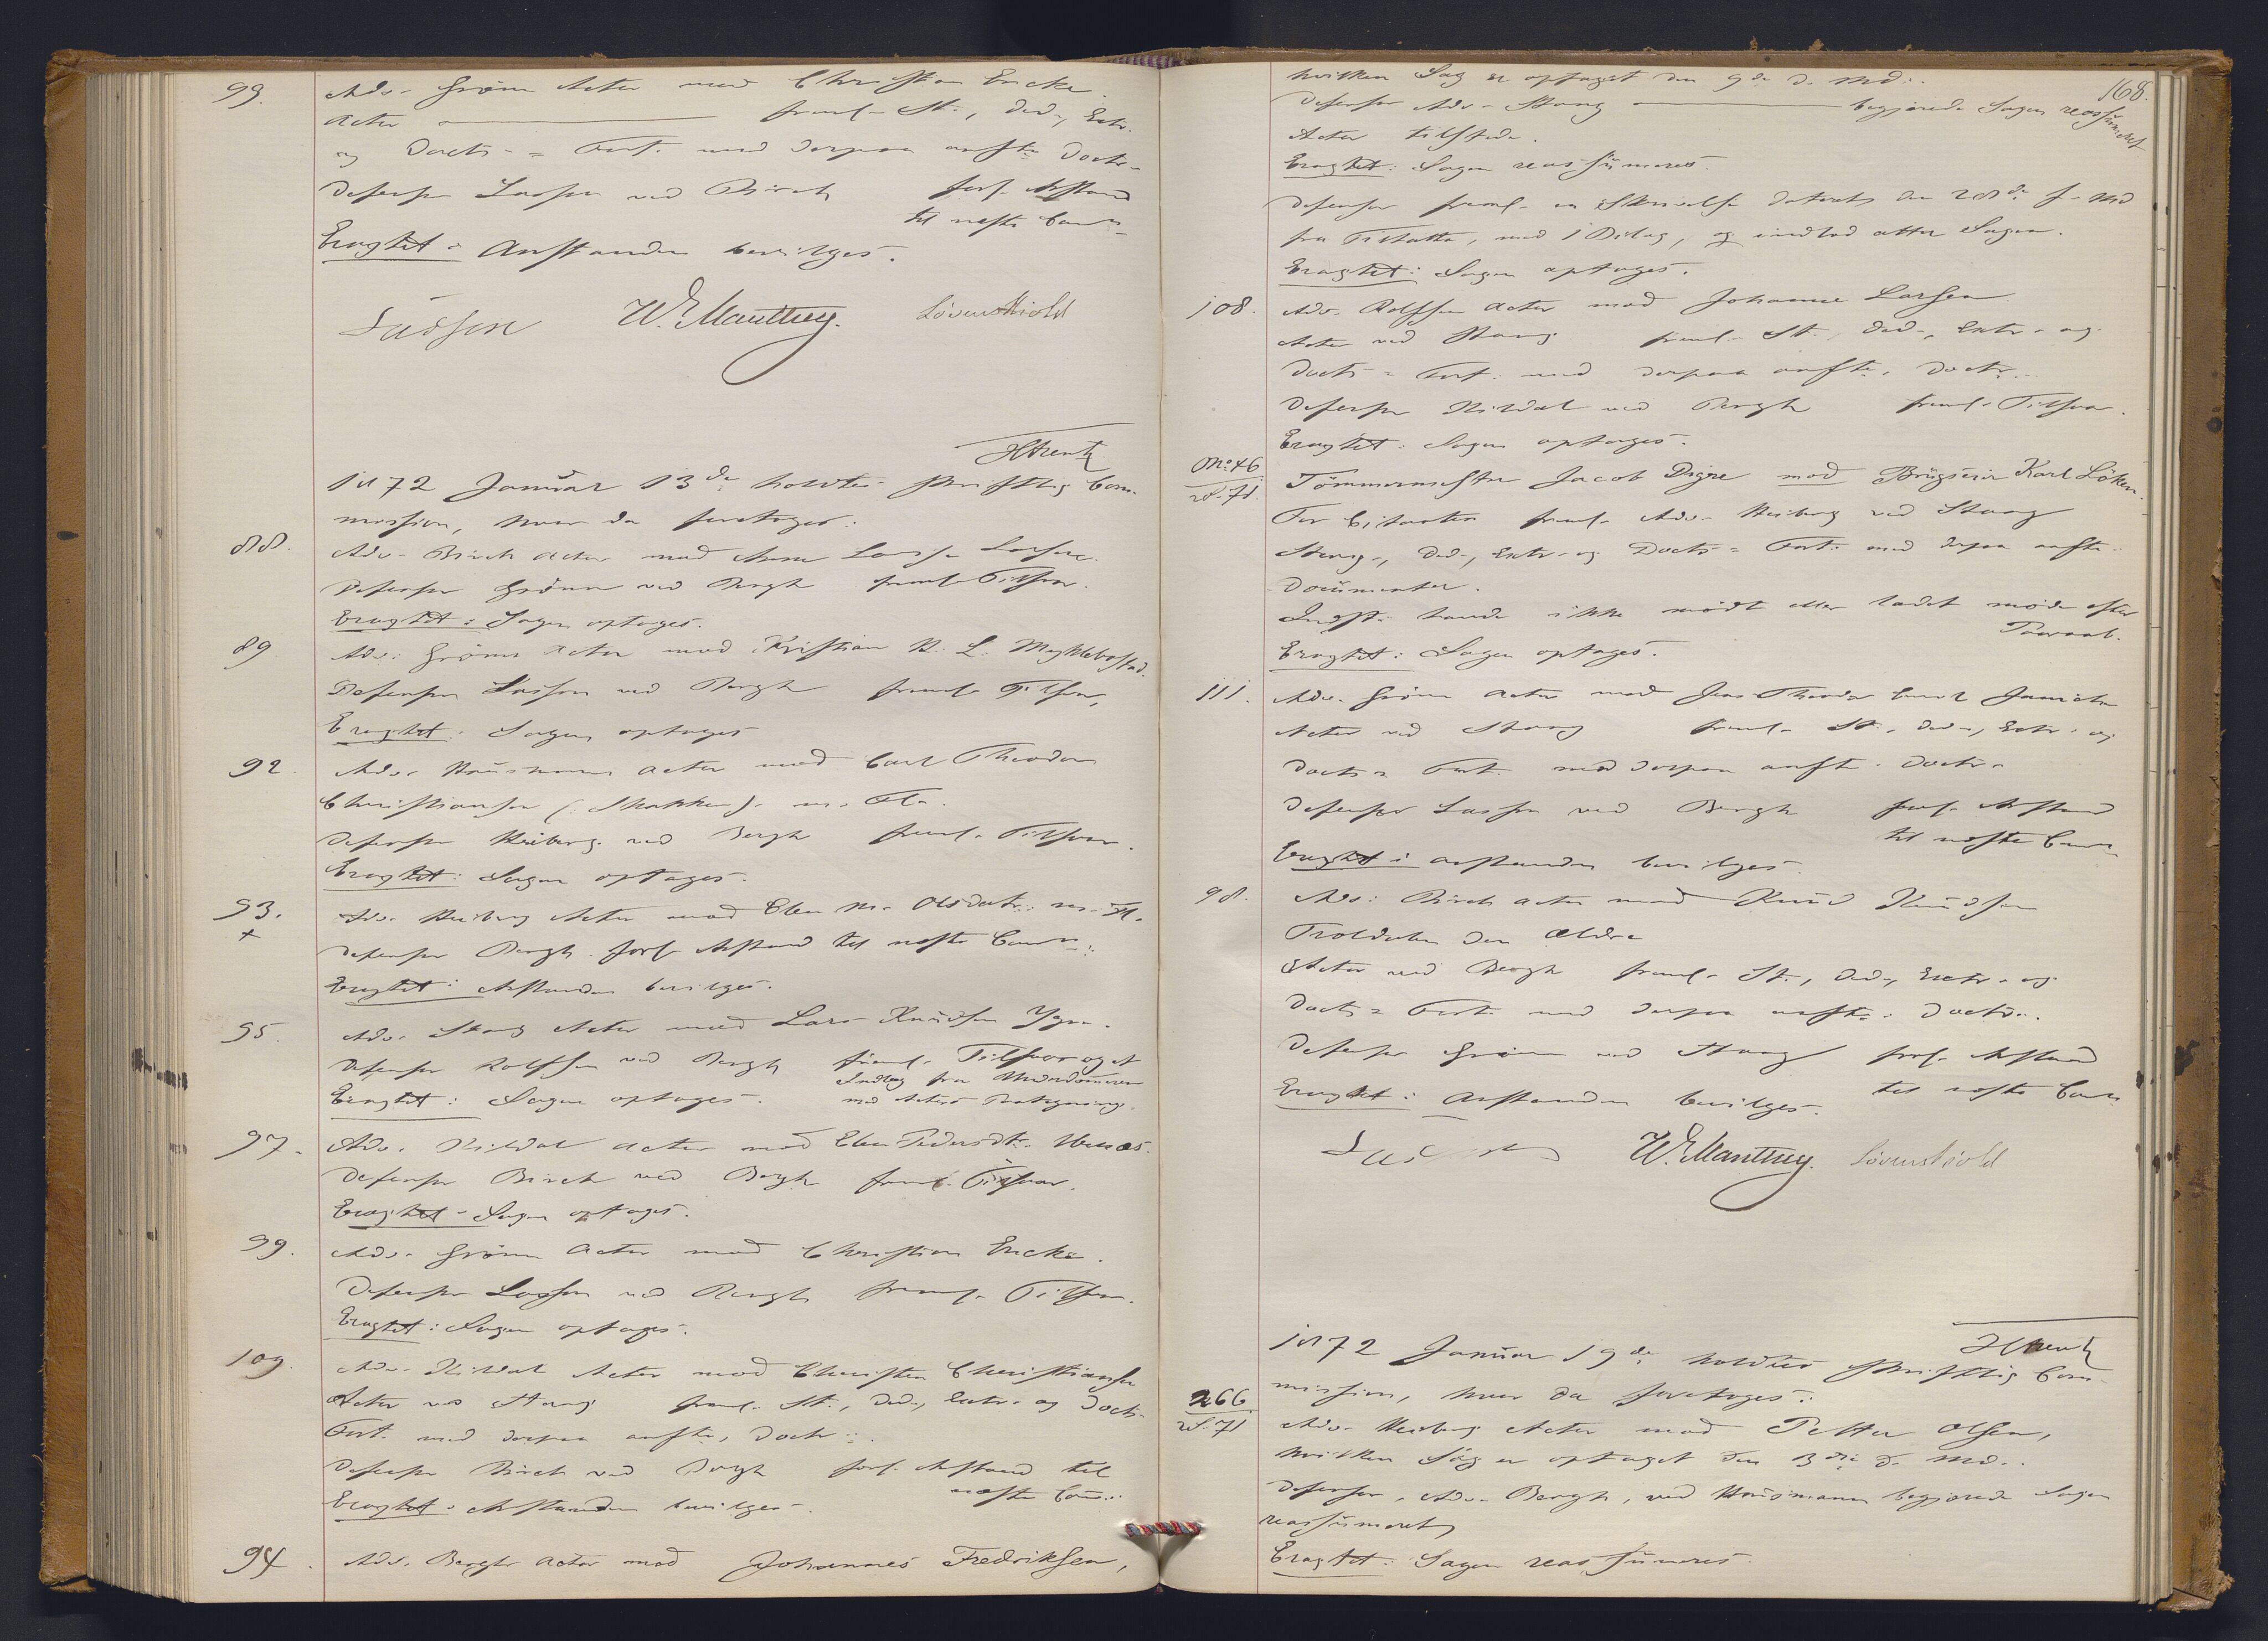 99. Adv. Grönn Actor mod Christian Encke.
Actor freml. St., Ded., Extr.
og Docts = Fort. med derpaa anfte Doctr.
Defensor Lasson ved Birch forl. Anstand
til næste Comn
Eragtet: Anstanden bevilges.
Lasson W. Manthey. Lövenskiold
HKrentz
1872 Januar 13de holdtes skriftlig Com-
mission, hvor da foretoges:
88. Adv. Birch Actor mod Anne Larsen
Defensor Grönn ved Bergh freml. Tilsvar.
Eragtet: Sagen optages.
89. Adv. Grönn Actor mod Kristian K. L. Myklebostad.
Defensor Lasson ved Bergh freml. Tilsvar,
Eragtet: Sagen optages
92. Adv. Hansmann Actor mod Carl Theodor
Christiansen (: Skakken) m. Fl.
Defensor Heiberg ved Bergh freml. Tilsvar.
Eragtet: Sagen optages.
93. Adv. Heiberg Actor mod Elen M. Olsdatr. m. Fl.
+
Defensor Bergh forl. Anstand til næste Comn:
Eragtet: Anstanden bevilges.
95. Adv. Stang Actor mod Lars Knudsen
Defensor Rolfsen ved Bergh freml. Tilsvar og et
Indlæg fra Underdommeren
Eragtet: Sagen optages. med Actors Paategning.
97. Adv. Kildal Actor mod Elen Pedersdtr.
Defensor Birch ved Bergh freml. Tilsvar.
Eragtet: Sagen optages.
99. Adv. Grönn Actor mod Christian Encke.
Defensor Lasson ved Bergh freml. Tilsvar.
Eragtet: Sagen optages.
109. Adv. Kildal Actor mod Christen Christiansen
Actor ved Stang freml. St., Ded., Extr. og Docts-
Fort. med derpaa anfte, Doctr:
Defensor Birch ved Bergh forl. Anstand til
næste Com:
Eragtet: Anstanden bevilges.
94. Adv. Bergh Actor mod Johannes Fredriksen,
168.
hvilken Sag er optaget den 9de d. Md.
Defensor Adv. Stang begjærede Sagen reassumeret
Actor tilstede.
Eragtet: Sagen reassumeres.
Defensor freml. en Skrivelse dateret den 28de f. Md
fra Tiltalte, med 1 Bilag, og indlod atter Sagen.
Eragtet: Sagen optages.
108. Adv. Rolfsen Actor mod Johanne Larsen
Actor ved Stang freml. St. Ded., Extr. og
Docts = Fort. med derpaa anfte. Doctr.
Defensor Kildal ved Bergh freml. Tilsvar.
Eragtet: Sagen optages.
No 46
Tömmermester Jacob Digre mod Brugseier Karl Löken.
For Citanten freml. Adv. Heiberg ved Stang
Stevn., Ded., Extr. og Docts = Fort. med derpaa anfte
Documenter.
Indst. havde ikke mödt eller ladet möde efter
Paaraab.
Eragtet: Sagen optages.
111. Adv. Grönn Actor mod Jens Theodor
Actor ved Stang freml. St., Ded., Extr. og
Docts = Fort. med derpaa anfte. Doctr.
Defensor Lasson ved Bergh forl. Anstand
til næste Comn
Eragtet: Anstanden bevilges.
98. Adv. Birch Actor mod Knud Knudsen
Troldalen den Ældre
Actor ved Bergh freml. St., Ded., Extr. og
Docts = Fort. med derpaa anfte. Doctr.
Defensor Grönn ved Stang forl. Anstand
til næste Comn
Eragtet: Anstanden bevilges.
Lasson W. Manthey. Lövenskiold
HKrentz
1872 Januar 19de holdtes skriftlig Com-
mission, hvor da foretoges:
266
Adv. Heiberg Actor mod Petter Olsen,
hvilken Sag er optaget den 3die d. Md.
Defensor, Adv. Bergh, ved Hansmann begjærede Sagen
reassumeret
Eragtet: Sagen reassumeres